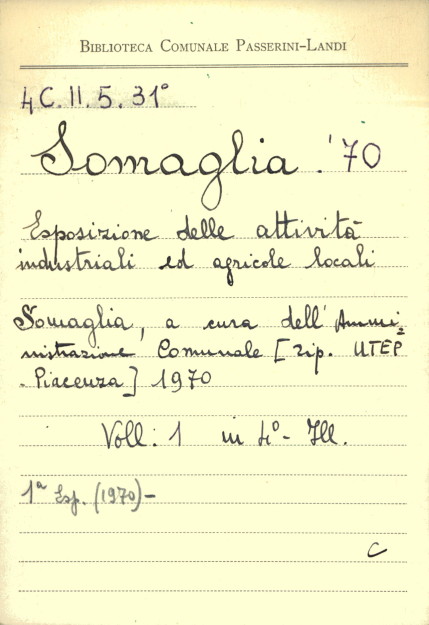 BIBLIOTECA COMUNALE PASSERINI-LANDI
4C.II.5.31°
Somaglia '70
Esposizione delle attività
industriali ed agricole locali
Somaglia, a cura dell'Ammi=
nistrazione Comunale [tip. UTEP
- Piacenza] 1970
Voll: 1 in 4°- Ill.
1ª Esp. (1970)-
C